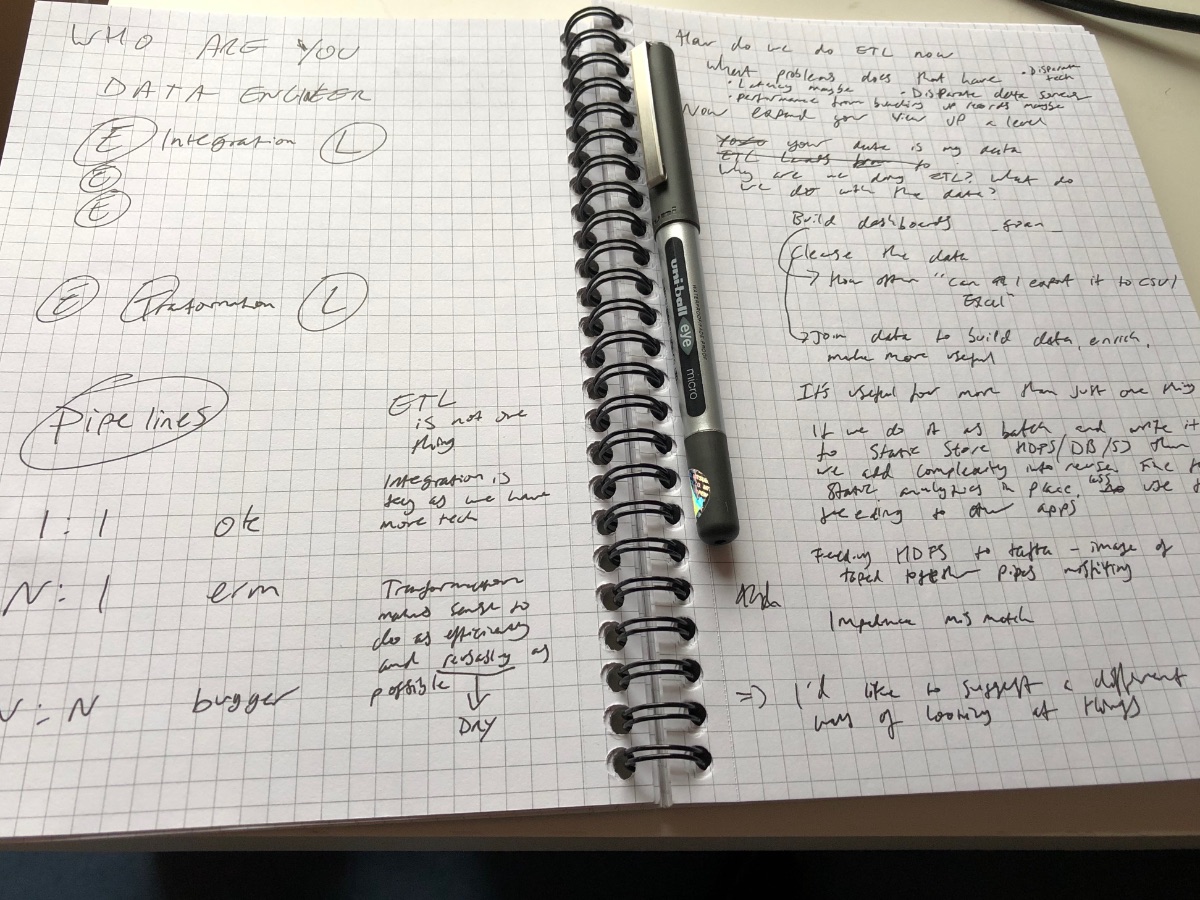 WHO ARE YOU
DATA ENGINEER
E Integration L
E
E
E Transformation L
Pipelines
1:1 ok
N:1 erm
N:N bugger
ETL
is not one
thing
Integration is
key as we have
more tech
Transformation
makes sense to
do as efficiently
and reusably as
possible
DRY
uni-ball eye
micro
How do we do ETL now
What problems does that have
• Disparate
tech
• Latency maybe • Disparate data sources
• performance from bunching up records maybe
Now expand your view up a level
your data is my data
ETL
Why are we doing ETL? What do
we do with the data?
Build dashboards
Cleanse the data
→ How often "Can I export it to CSV/
Excel"
→ Join data to build data, enrich,
make more useful
It's useful for more than just one thing
If we do it as batch and write it
to Static Store HDFS/DB/S3 then
we add complexity into reuse. Fine
static analytics in place, use
feeding to other apps
Feeding HDFS to kafka - image of
taped together pipes misfitting
Impedence mis match
=> I'd like to suggest a different
way of looking at things